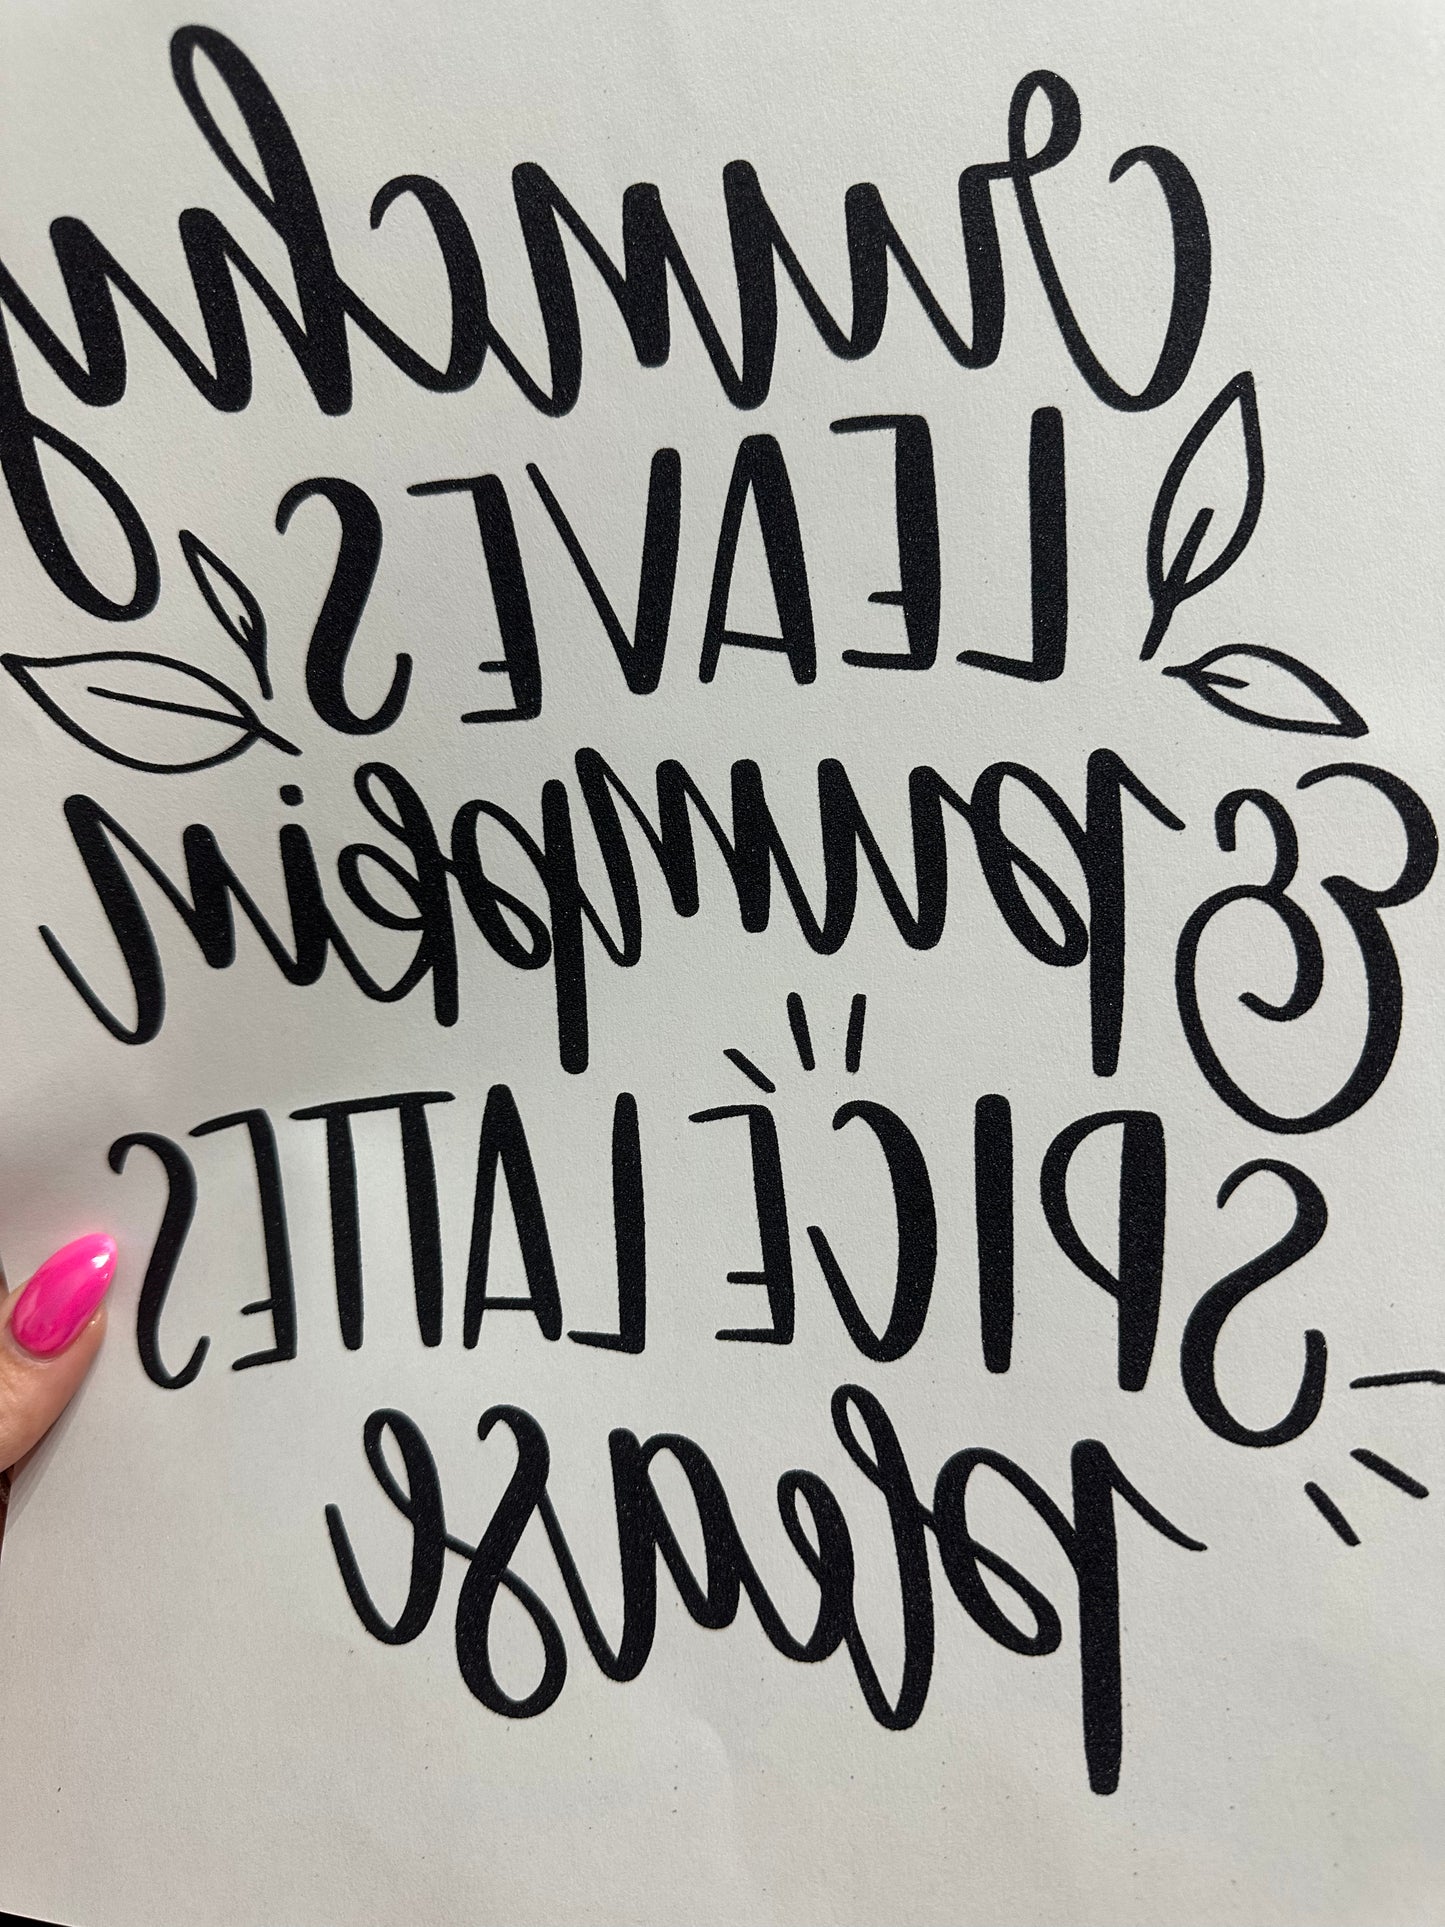 Crunchy
LEAVES
& pumpkin
SPICE LATTES
please